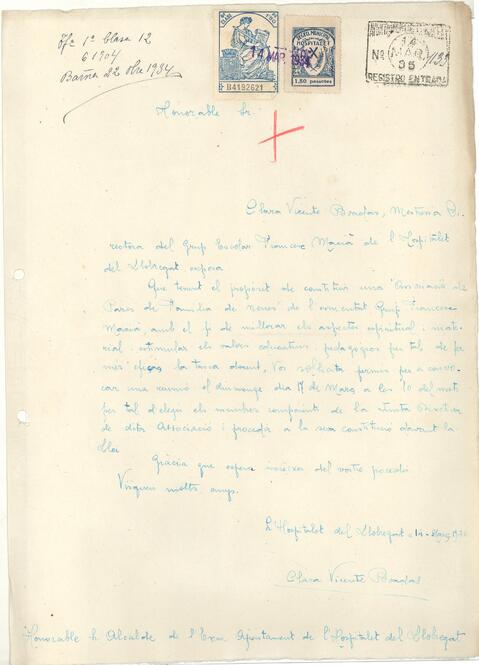 61904
14 MAR 1935
B4192621
SELLO MUNICIPAL
HOSPITALET
1,50 pesetas
14
MAR
35
Nº
REGISTRO ENTRADA
Honorable Sr.
Clara Vicente Bradas, Mestressa Di-
rectora del Grup Escolar Francesc Macià de l'Hospitalet
del Llobregat exposa
Que tenint el propòsit de constituir una "Associació de
Pares de Família de nenes" de l'esmentat Grup Francesc
Macià, amb el fi de millorar els aspectes espiritual i mate-
rial, estimular els valors educatius i pedagògics per tal de fer
més eficaç la tasca docent, Vos sol·licita permís per a convo-
car una reunió el diumenge dia 17 de Març a les 10 del matí
per tal d'elegir els membres components de la Junta Directiva
de dita Associació i procedir a la seva constitució davant la-
Gràcia que espera mereixer del vostre procedir
Visqueu molts anys.
L'Hospitalet del Llobregat a 14 - Març
Clara Vicente Bradas
Honorable Sr. Alcalde de l'Exm Ajuntament de l'Hospitalet del Llobregat